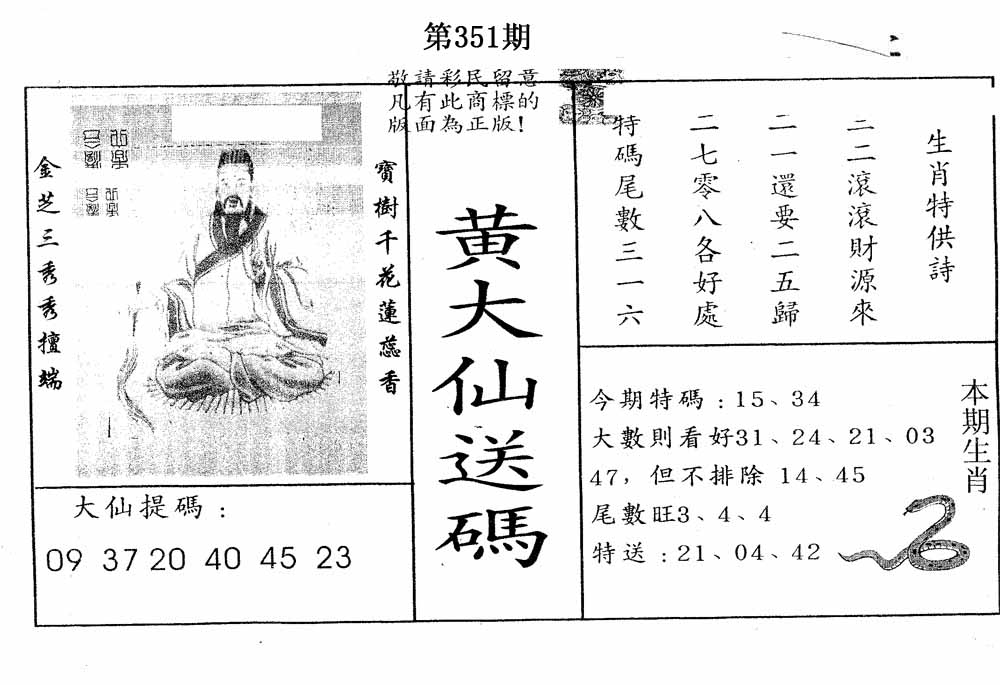 第351期
敬請彩民留意
凡有此商標的
版面為正版!
寶樹千花蓮蕊香
金芝三秀秀擅端
大仙提碼：
09 37 20 40 45 23
黃大仙送碼
生肖特供詩
二二滾滾財源來
二一還要二五歸
二七零八各好處
特碼尾數三一六
本期生肖
今期特碼：15、34
大數則看好31、24、21、03
47，但不排除 14、45
尾數旺3、4、4
特送：21、04、42